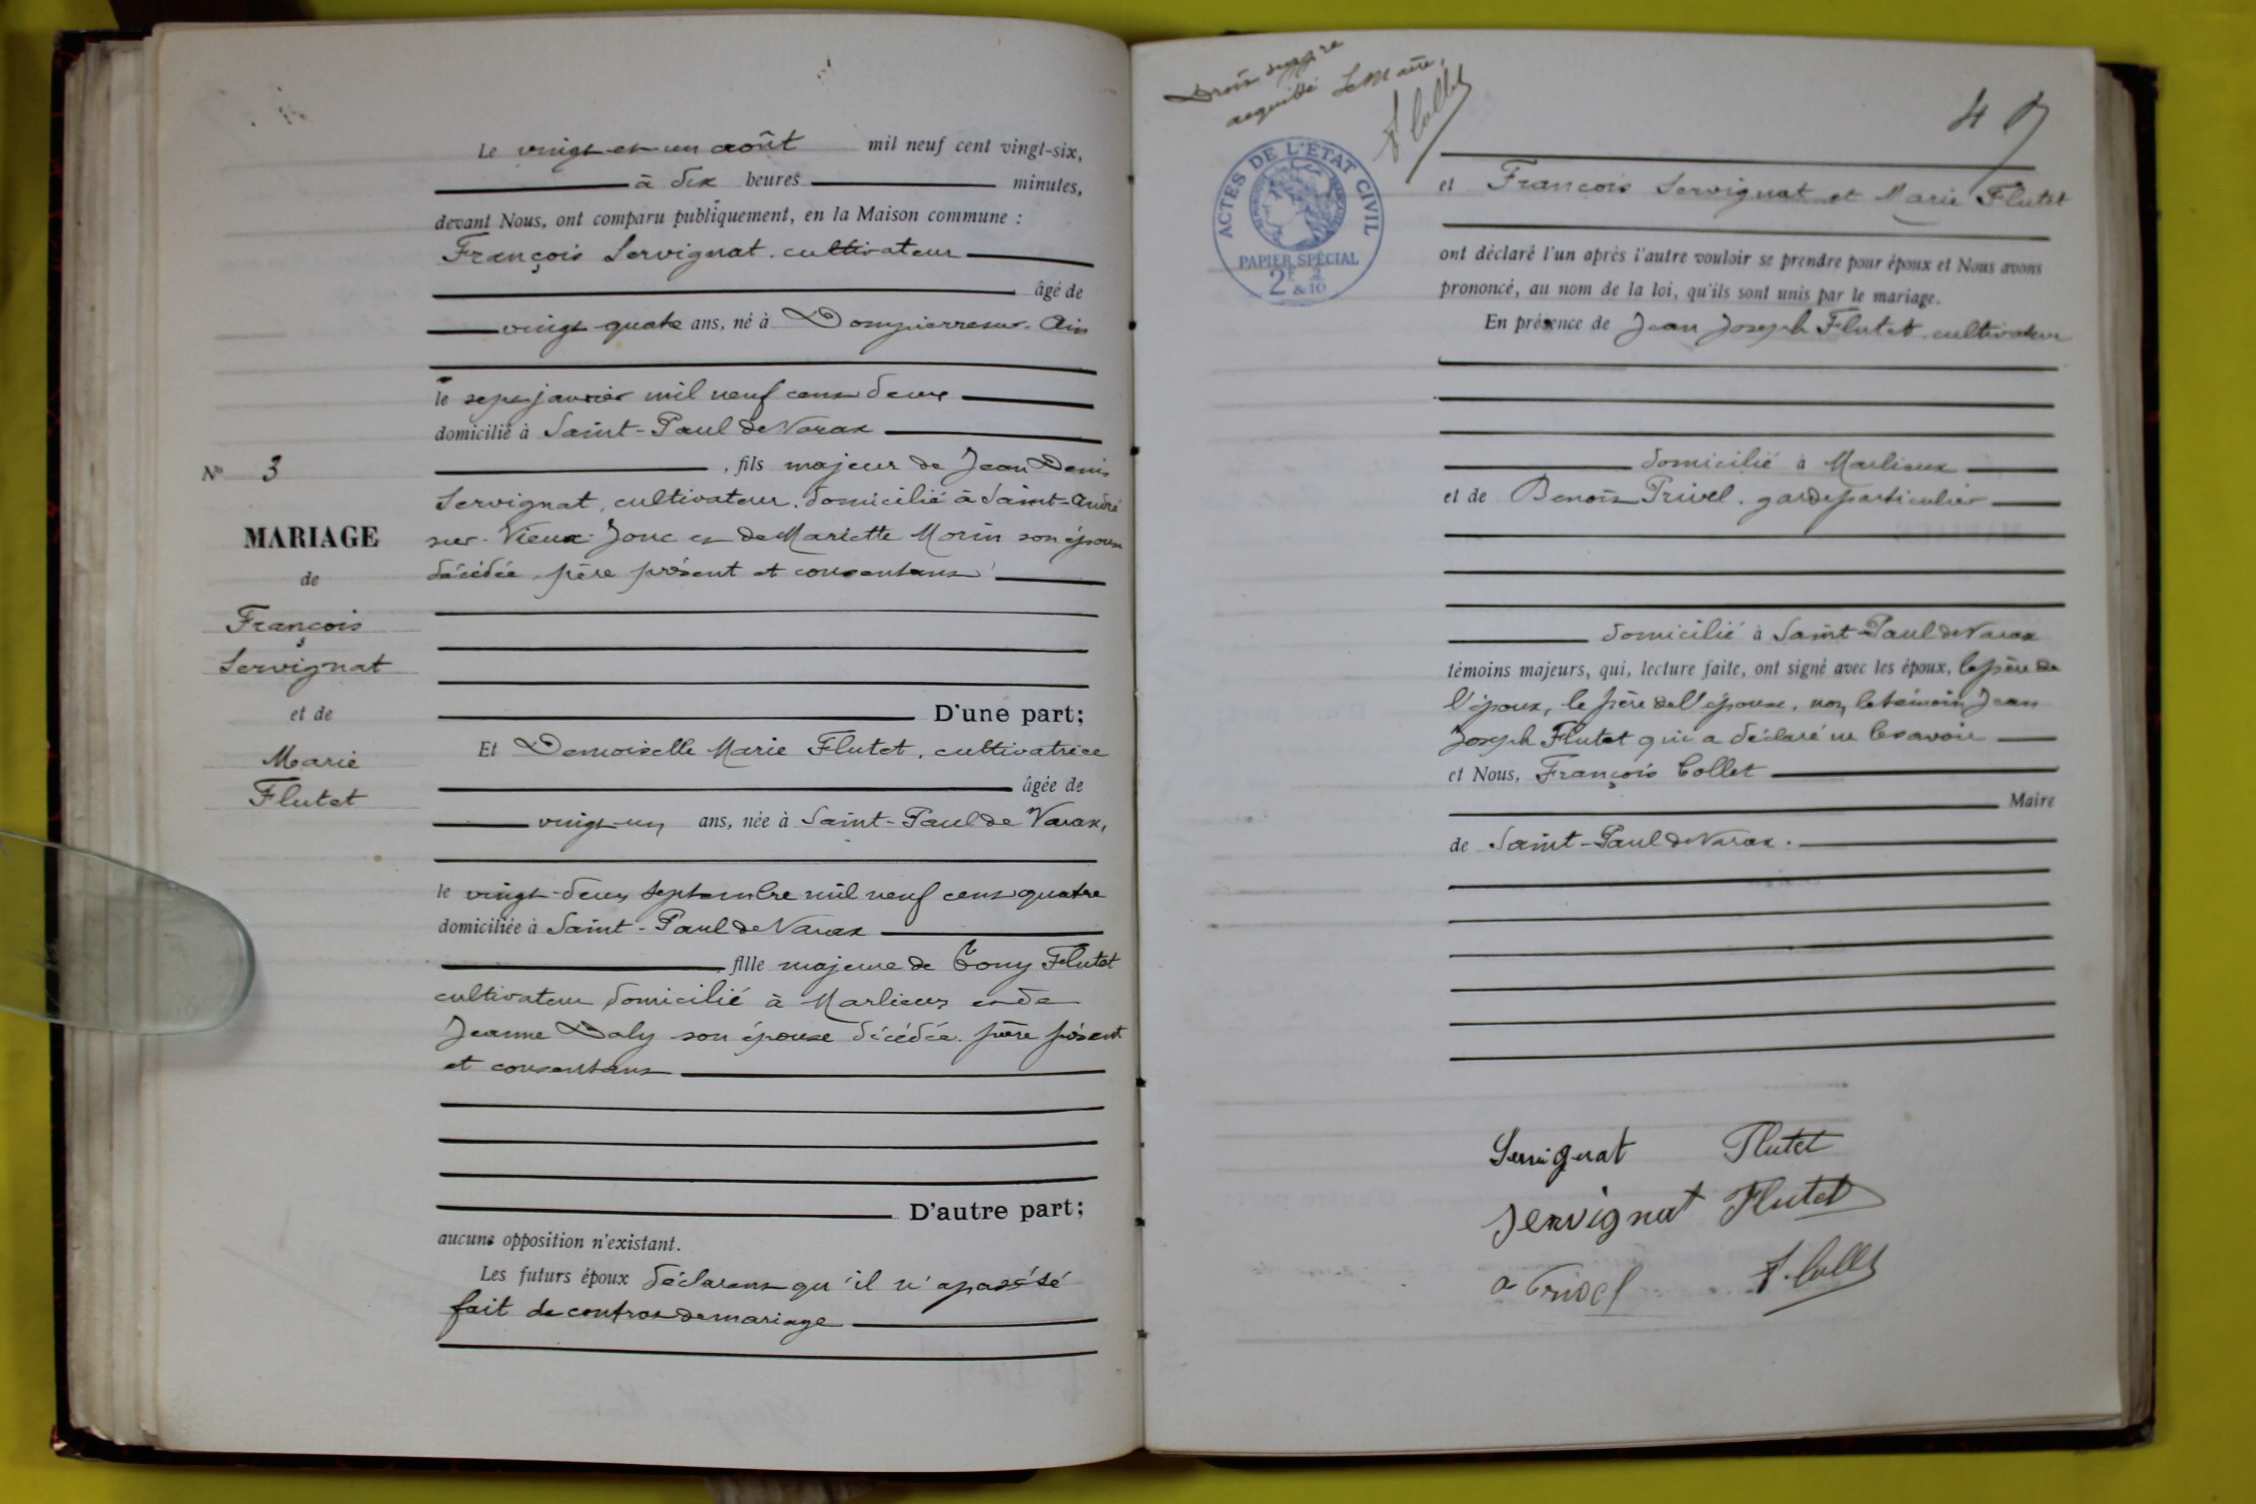 Le vingt et un août mil neuf cent vingt-six,
à dix heures minutes,
devant Nous, ont comparu publiquement, en la Maison commune :
François Servignat, cultivateur
âgé de
vingt quatre ans, né à Dompierre sur Ain
le sept janvier mil neuf cent deux
domicilié à Saint-Paul de Varax
, fils majeur de Jean Denis
Servignat, cultivateur, domicilié à Saint-André
sur-Vieux-Jonc et de Mariette Morin son épouse
décédée, père présent et consentant
D'une part;
Et Demoiselle Marie Flutet, cultivatrice
âgée de
vingt-un ans, née à Saint-Paul de Varax,
le vingt-deux septembre mil neuf cent quatre
domiciliée à Saint-Paul de Varax
fille majeure de Tony Flutet
cultivateur domicilié à Marlieux et de
Jeanne Daly son épouse décédée, père présent
et consentant
D'autre part;
aucune opposition n'existant.
Les futurs époux déclarent qu'il n'a pas été
fait de contrat de mariage
No 3
MARIAGE
de
François
Servignat
et de
Marie
Flutet
Droits
acquittés Le Maire,
F. Collet
ACTES DE L'ÉTAT CIVIL
PAPIER SPÉCIAL
2F & 2/10
et François Servignat et Marie Flutet
ont déclaré l'un après l'autre vouloir se prendre pour époux et Nous avons
prononcé, au nom de la loi, qu'ils sont unis par le mariage.
En présence de Jean Joseph Flutet, cultivateur
domicilié à Marlieux
et de Benoît Privel, garde particulier
domicilié à Saint-Paul de Varax
témoins majeurs, qui, lecture faite, ont signé avec les époux, le père de
l'époux, le père de l'épouse, non le témoin Jean
Joseph Flutet qui a déclaré ne le savoir
et Nous, François Collet
Maire
de Saint-Paul de Varax.
Servignat Flutet
Servignat Flutet
F. Collet